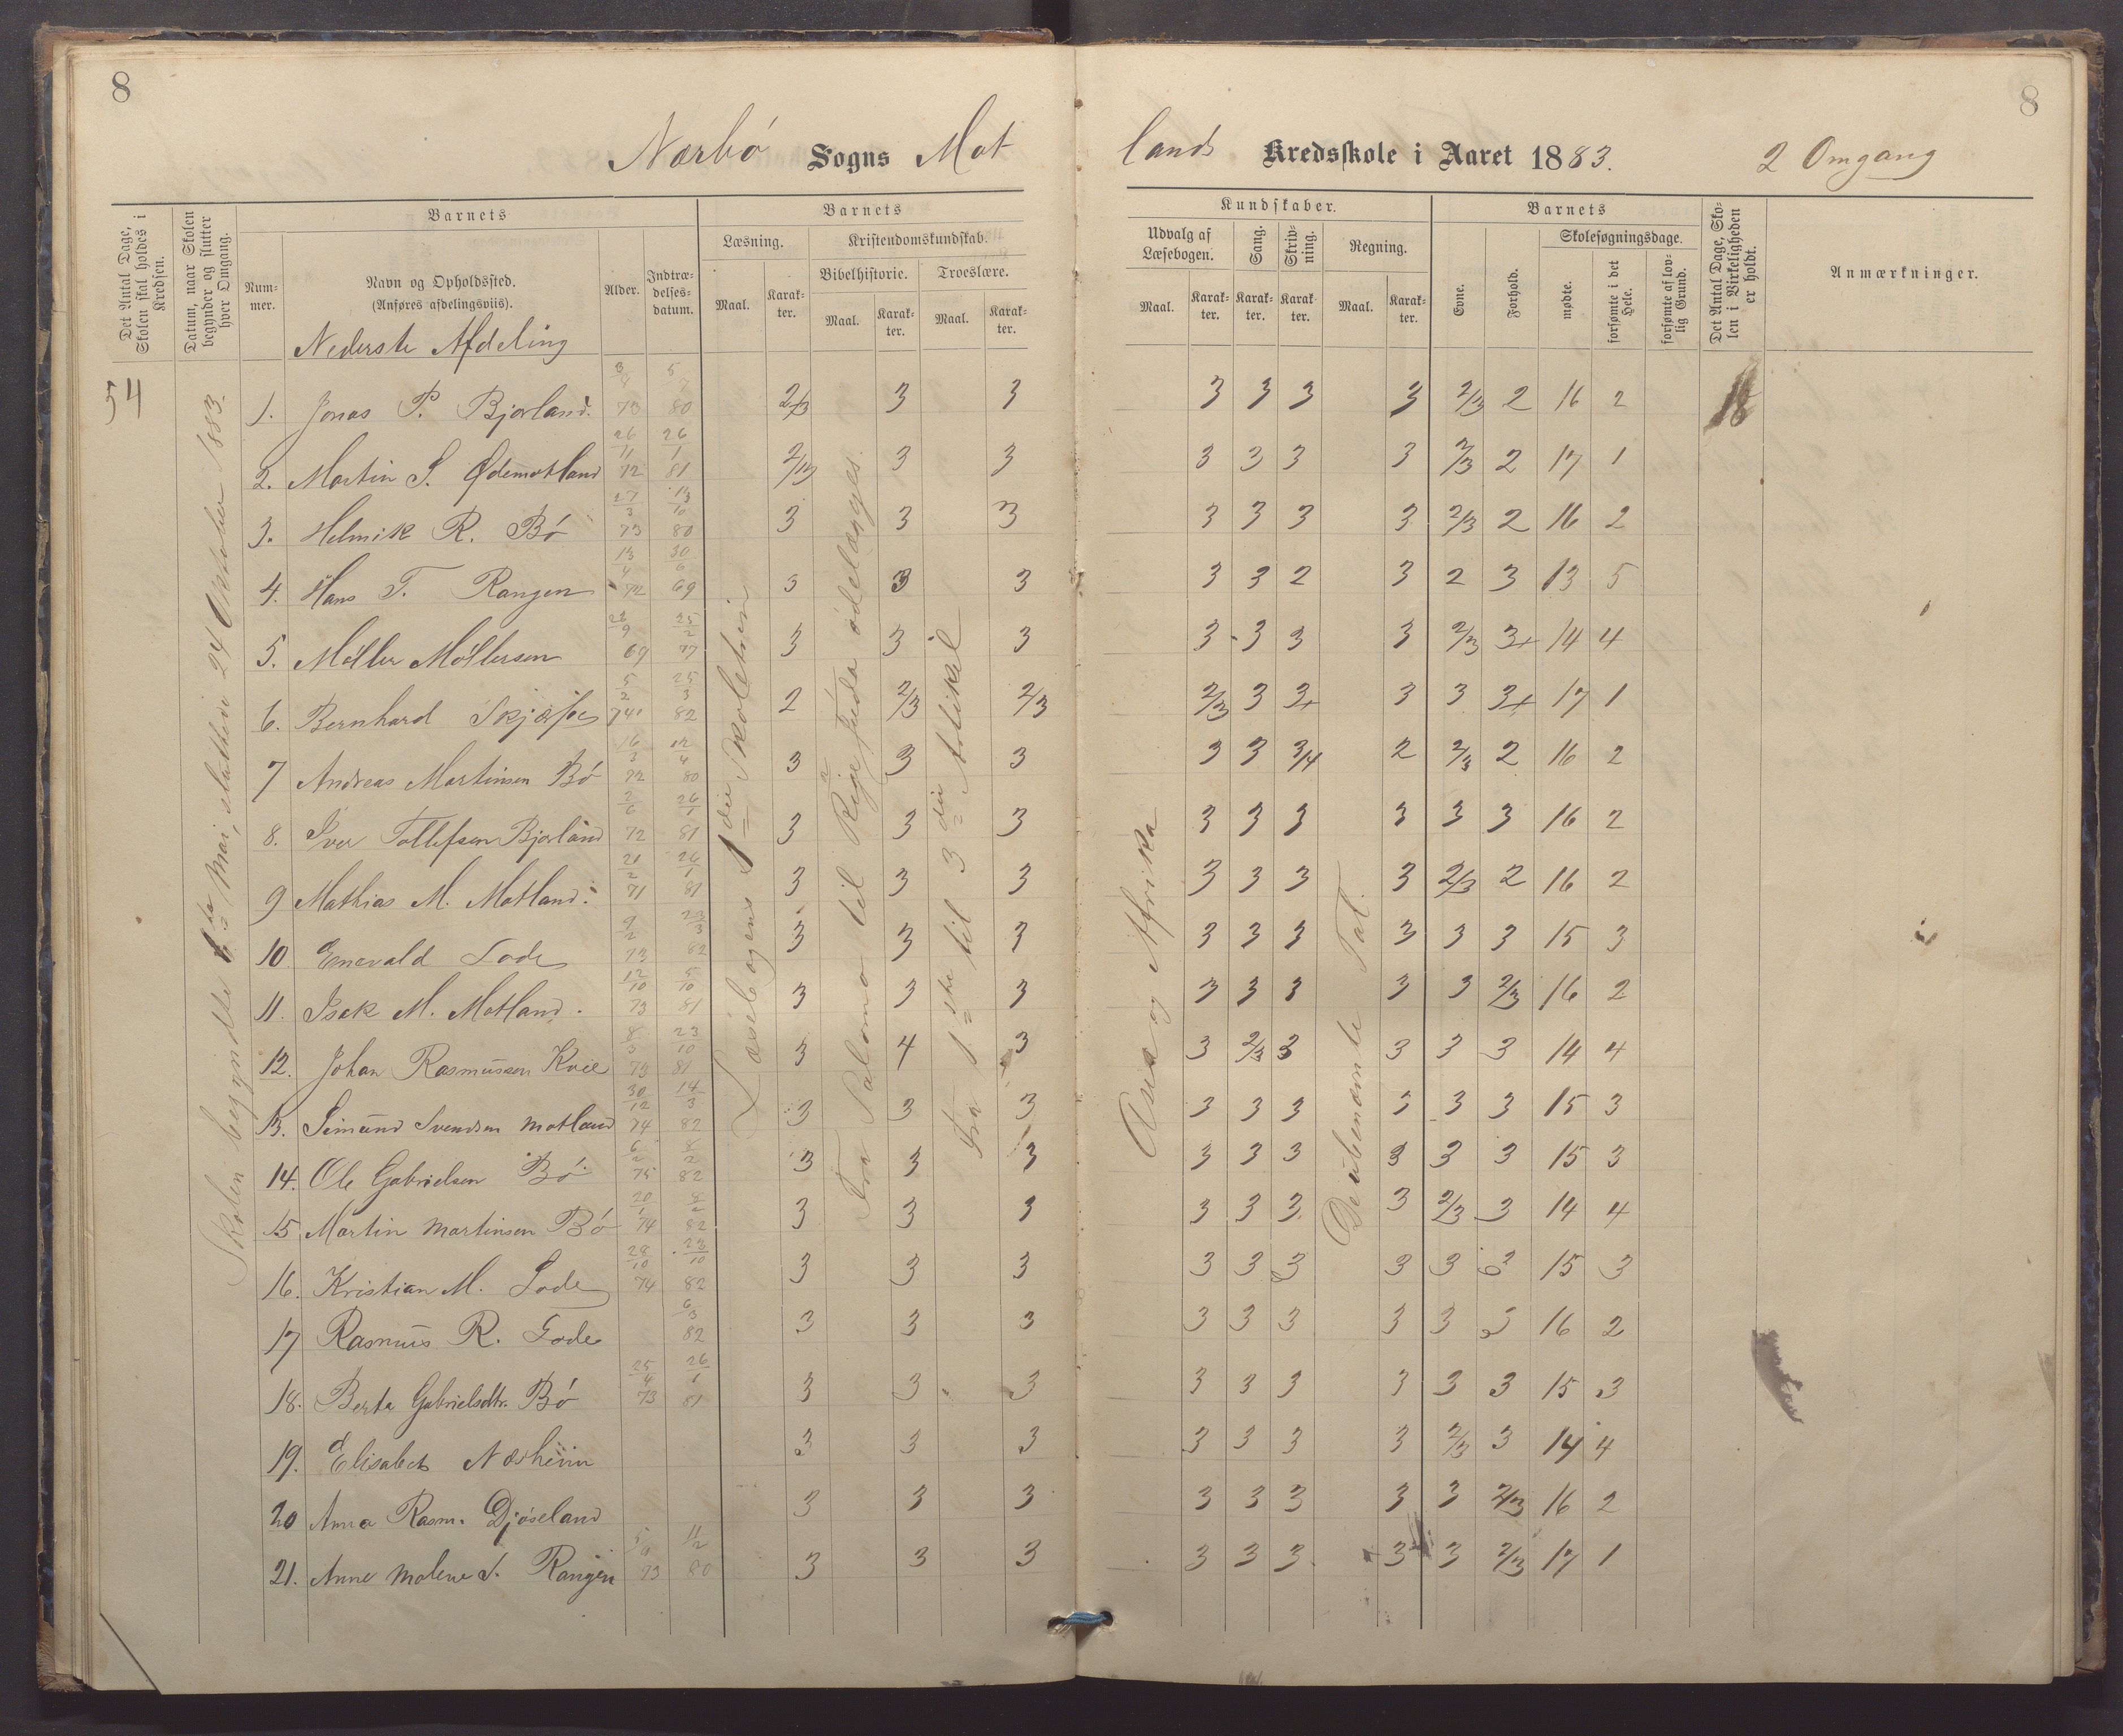 8
8
Nærbö Sogns Mot
lands Kredsskole i Aaret 1883. 2 Omgang
Det Antal Dage, Skolen skal holdes i Kredsen.
Datum, naar Skolen begynder og slutter hver Omgang.
Barnets
Num-
mer.
Navn og Opholdssted.
(Anføres afdelingsviis).
Alder.
Indtræ-
delses-
datum.
Barnets
Læsning.
Kristendomskundskab.
Bibelhistorie.
Troeslære.
Maal.
Karak-
ter.
Maal.
Karak-
ter.
Maal.
Karak-
ter.
Kundskaber.
Udvalg af
Læsebogen.
Sang.
Skriv-
ning.
Regning.
Maal.
Karak-
ter.
Karak-
ter.
Karak
ter.
Maal.
Karak-
ter.
Barnets
Evne.
Forhold.
Skolesøgningsdage.
mødte.
forsømte i det Hele.
forsømte af lov-
lig Grund.
Det Antal Dage, Sko-
len i Virkeligheden
er holdt.
Anmærkninger.
Nederste Afdeling
54
18
Skolen begyndte 1ste Mai, sluttede 24 Oktober 1883.
Læsebogens 1 die Skoletrin
Fra Salomo til Rige Juda ødelægges.
Fra 1ste til 3die Artikel
Asia og Afrika
De ubenævnte Tal.
1. Jonas P. Bjorland. 3/8 73 5/7 80 2/3 3 3 3 3 3 3 2/3 2 16 2
2. Martin S. Ødemotland 26/11 72 26/1 81 2/3 3 3 3 3 3 3 2/3 2 17 1
3. Helmik R. Bö 27/3 73 13/10 80 3 3 3 3 3 3 3 2/3 2 16 2
4. Hans T. Rangen 13/4 72 30/6 69 3 3 3 3 3 2 3 2 3 13 5
5. Möller Möllersen 22/9 69 25/2 77 3 3 3 3 3 3 3 2/3 3+ 14 4
6. Bernhard 5/2 74 25/3 82 2 2/3 2/3 2/3 3 3+ 3 3 3+ 17 1
7 Andreas Martinsen Bö 16/3 72 12/4 80 3 3 3 3 3 3/4 2 2/3 2 16 2
8. Iver Tollefsen Bjorland 2/6 72 26/1 81 3 3 3 3 3 3 3 3 3 16 2
9 Mathias M. Motland 21/2 71 26/1 81 3 3 3 3 3 3 3 2/3 2 16 2
10 Enevald Lode 9/2 73 23/3 82 3 3 3 3 3 3 3 3 3 15 3
11. Isak M. Motland. 12/10 73 5/10 81 3 3 3 3 3 3 3 3 2/3 16 2
12. Johan Rasmussen Kvie 8/3 73 23/10 81 3 4 3 3 2/3 3 3 3 3 14 4
13. Simund Svendsen Motland 30/12 74 14/3 82 3 3 3 3 3 3 3 3 3 15 3
14. Ole Gabrielsen Bö 6/2 75 8/2 82 3 3 3 3 3 3 3 3 3 15 3
15 Martin Martinsen Bö 20/1 74 8/2 82 3 3 3 3 3 3 3 2/3 3 14 4
16. Kristian M. Lode 28/10 74 23/10 82 3 3 3 3 3 3 3 3 3 15 3
17 Rasmus R. Lode 6/3 82 3 3 3 3 3 3 3 3 3 16 2
18. Berta Gabrielsdtr. Bö 25/4 73 26/1 81 3 3 3 3 3 3 3 3 3 15 3
19. Elisabet Næsheim 3 3 3 3 3 3 3 2/3 3 14 4
20 Anna Rasm. Djöseland 3 3 3 3 3 3 3 3 2/3 16 2
21. Anne Malene T. Rangen 73 11/2 80 3 3 3 3 3 3 3 3 2/3 17 1